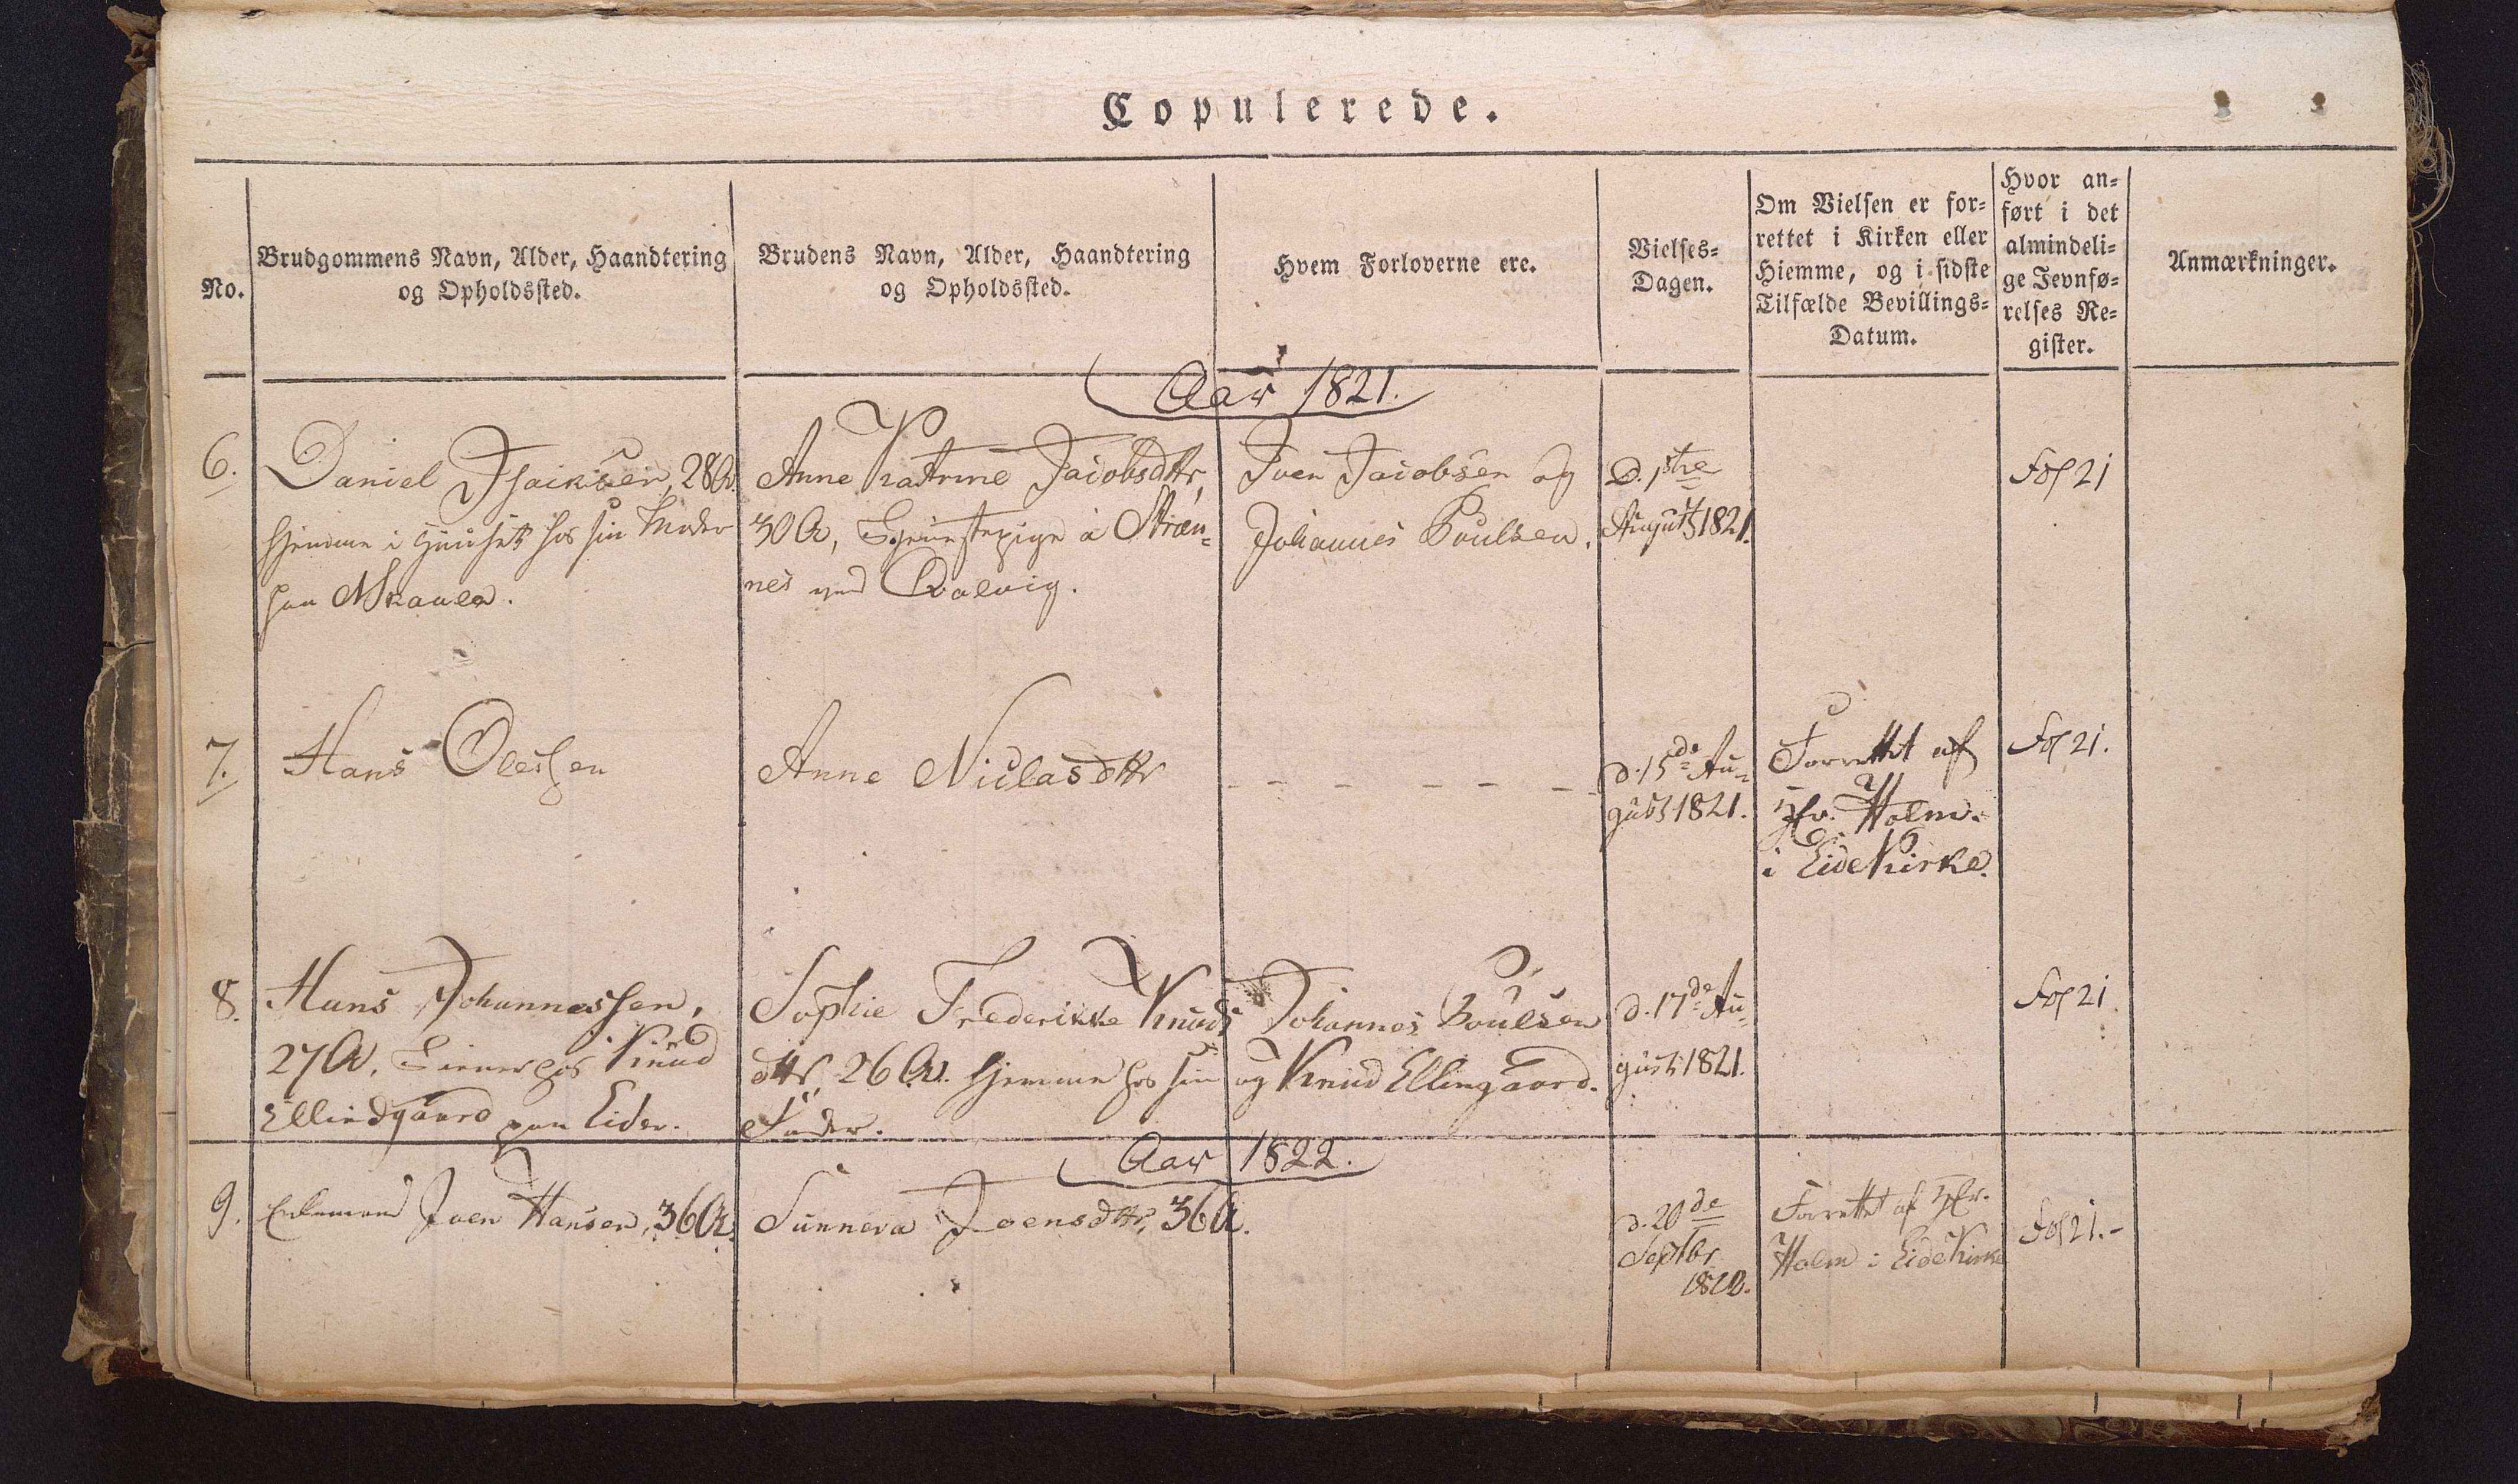 Copulerede.
No.
Brudgommens Navn, Alder, Haandtering
og Opholdssted.
Brudens Navn, Alder, Haandtering
og Opholdssted.
Hvem Forloverne ere.
Vielses-
Dagen.
Om Vielsen er for-
rettet i Kirken eller
Hiemme, og i sidste
Tilfælde Bevillings-
Datum.
Hvor an-
ført i det
almindeli-
ge Jevnfø-
relses Re-
gister.
Anmærkninger.
Aar 1821.
6.
Daniel Isaiksen, 28 A.
hjemme i Huuset hos sin Moder
paa
Anne Katrine Jacobsdttr,
30 A, Tjenestepige a Stræn-
nes ved Qvalvig.
Joen Jacobsen og
Johannes Poulsen.
D. 1ste
August 1821.
Fol 21
7.
Hans Olessen
Anne Niclasdttr
- - - - - -
d. 15de Au-
gust 1821.
Forrettet af
Hr. Holm.
i Eide Kirke.
Fol 21.
8.
Hans Johannessen,
27 A, Tiener hos Knud
Ellindgaard paa Eide.
Sophie Frederikke Knuds
dttr, 26 A. hjemme hos sin
Fader.
Johannes Poulsen
og Knud Ellingaard.
d. 17de Au-
gust 1821.
Fol 21.
Aar 1822.
9.
Enkemand Joen Hansen, 36 A.
Sunneva Joensdttr, 36 A.
d. 20de
Septbr
1822.
Forrettet af Hr.
Holm i Eide Kirke
Fol 21.-